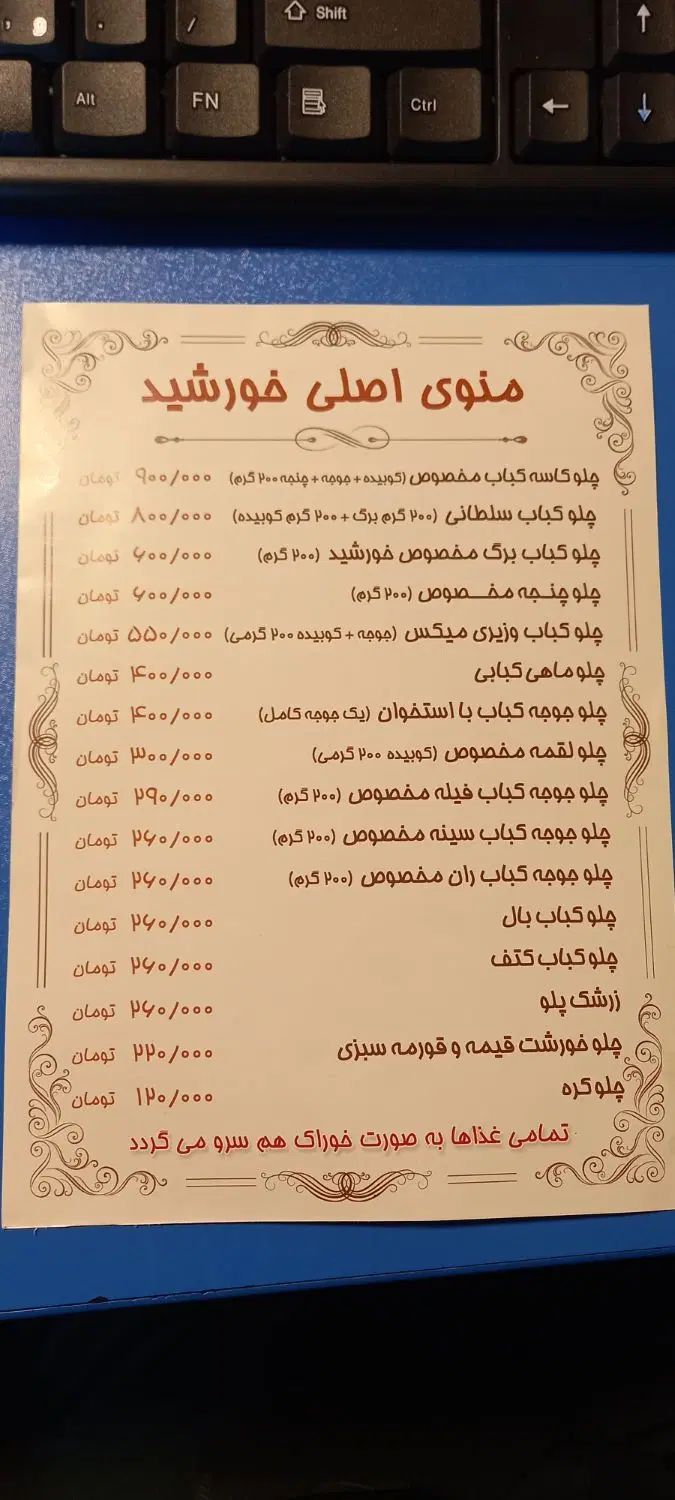 , 9 . / Shift ↑
Alt FN Ctrl ← ↓
منوی اصلی خورشید
چلو کاسه کباب مخصوص (کوبیده + جوجه + چنجه ۲۰۰ گرم) ۹۰۰/۰۰۰ تومان
چلو کباب سلطانی (۲۰۰ گرم برگ + ۲۰۰ گرم کوبیده) ۸۰۰/۰۰۰ تومان
چلو کباب برگ مخصوص خورشید (۲۰۰ گرم) ۶۰۰/۰۰۰ تومان
چلو چنـجه مخـــصوص (۲۰۰ گرم) ۶۰۰/۰۰۰ تومان
چلو کباب وزیری میکس (جوجه + کوبیده ۲۰۰ گرمی) ۵۵۰/۰۰۰ تومان
چلو ماهی کبابی ۴۰۰/۰۰۰ تومان
چلو جوجه کباب با استخوان (یک جوجه کامل) ۴۰۰/۰۰۰ تومان
چلو لقمه مخصوص (کوبیده ۲۰۰ گرمی) ۳۰۰/۰۰۰ تومان
چلو جوجه کباب فیله مخصوص (۲۰۰ گرم) ۲۹۰/۰۰۰ تومان
چلو جوجه کباب سینه مخصوص (۲۰۰ گرم) ۲۶۰/۰۰۰ تومان
چلو جوجه کباب ران مخصوص (۲۰۰ گرم) ۲۶۰/۰۰۰ تومان
چلو کباب بال ۲۶۰/۰۰۰ تومان
چلو کباب کتف ۲۶۰/۰۰۰ تومان
زرشک پلو ۲۶۰/۰۰۰ تومان
چلو خورشت قیمه و قورمه سبزی ۲۲۰/۰۰۰ تومان
چلو کره ۱۲۰/۰۰۰ تومان
تمامی غذاها به صورت خوراک هم سرو می گردد